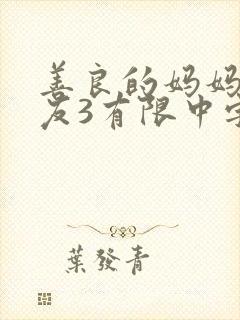 善良的妈妈
友3有限中字
葉發青